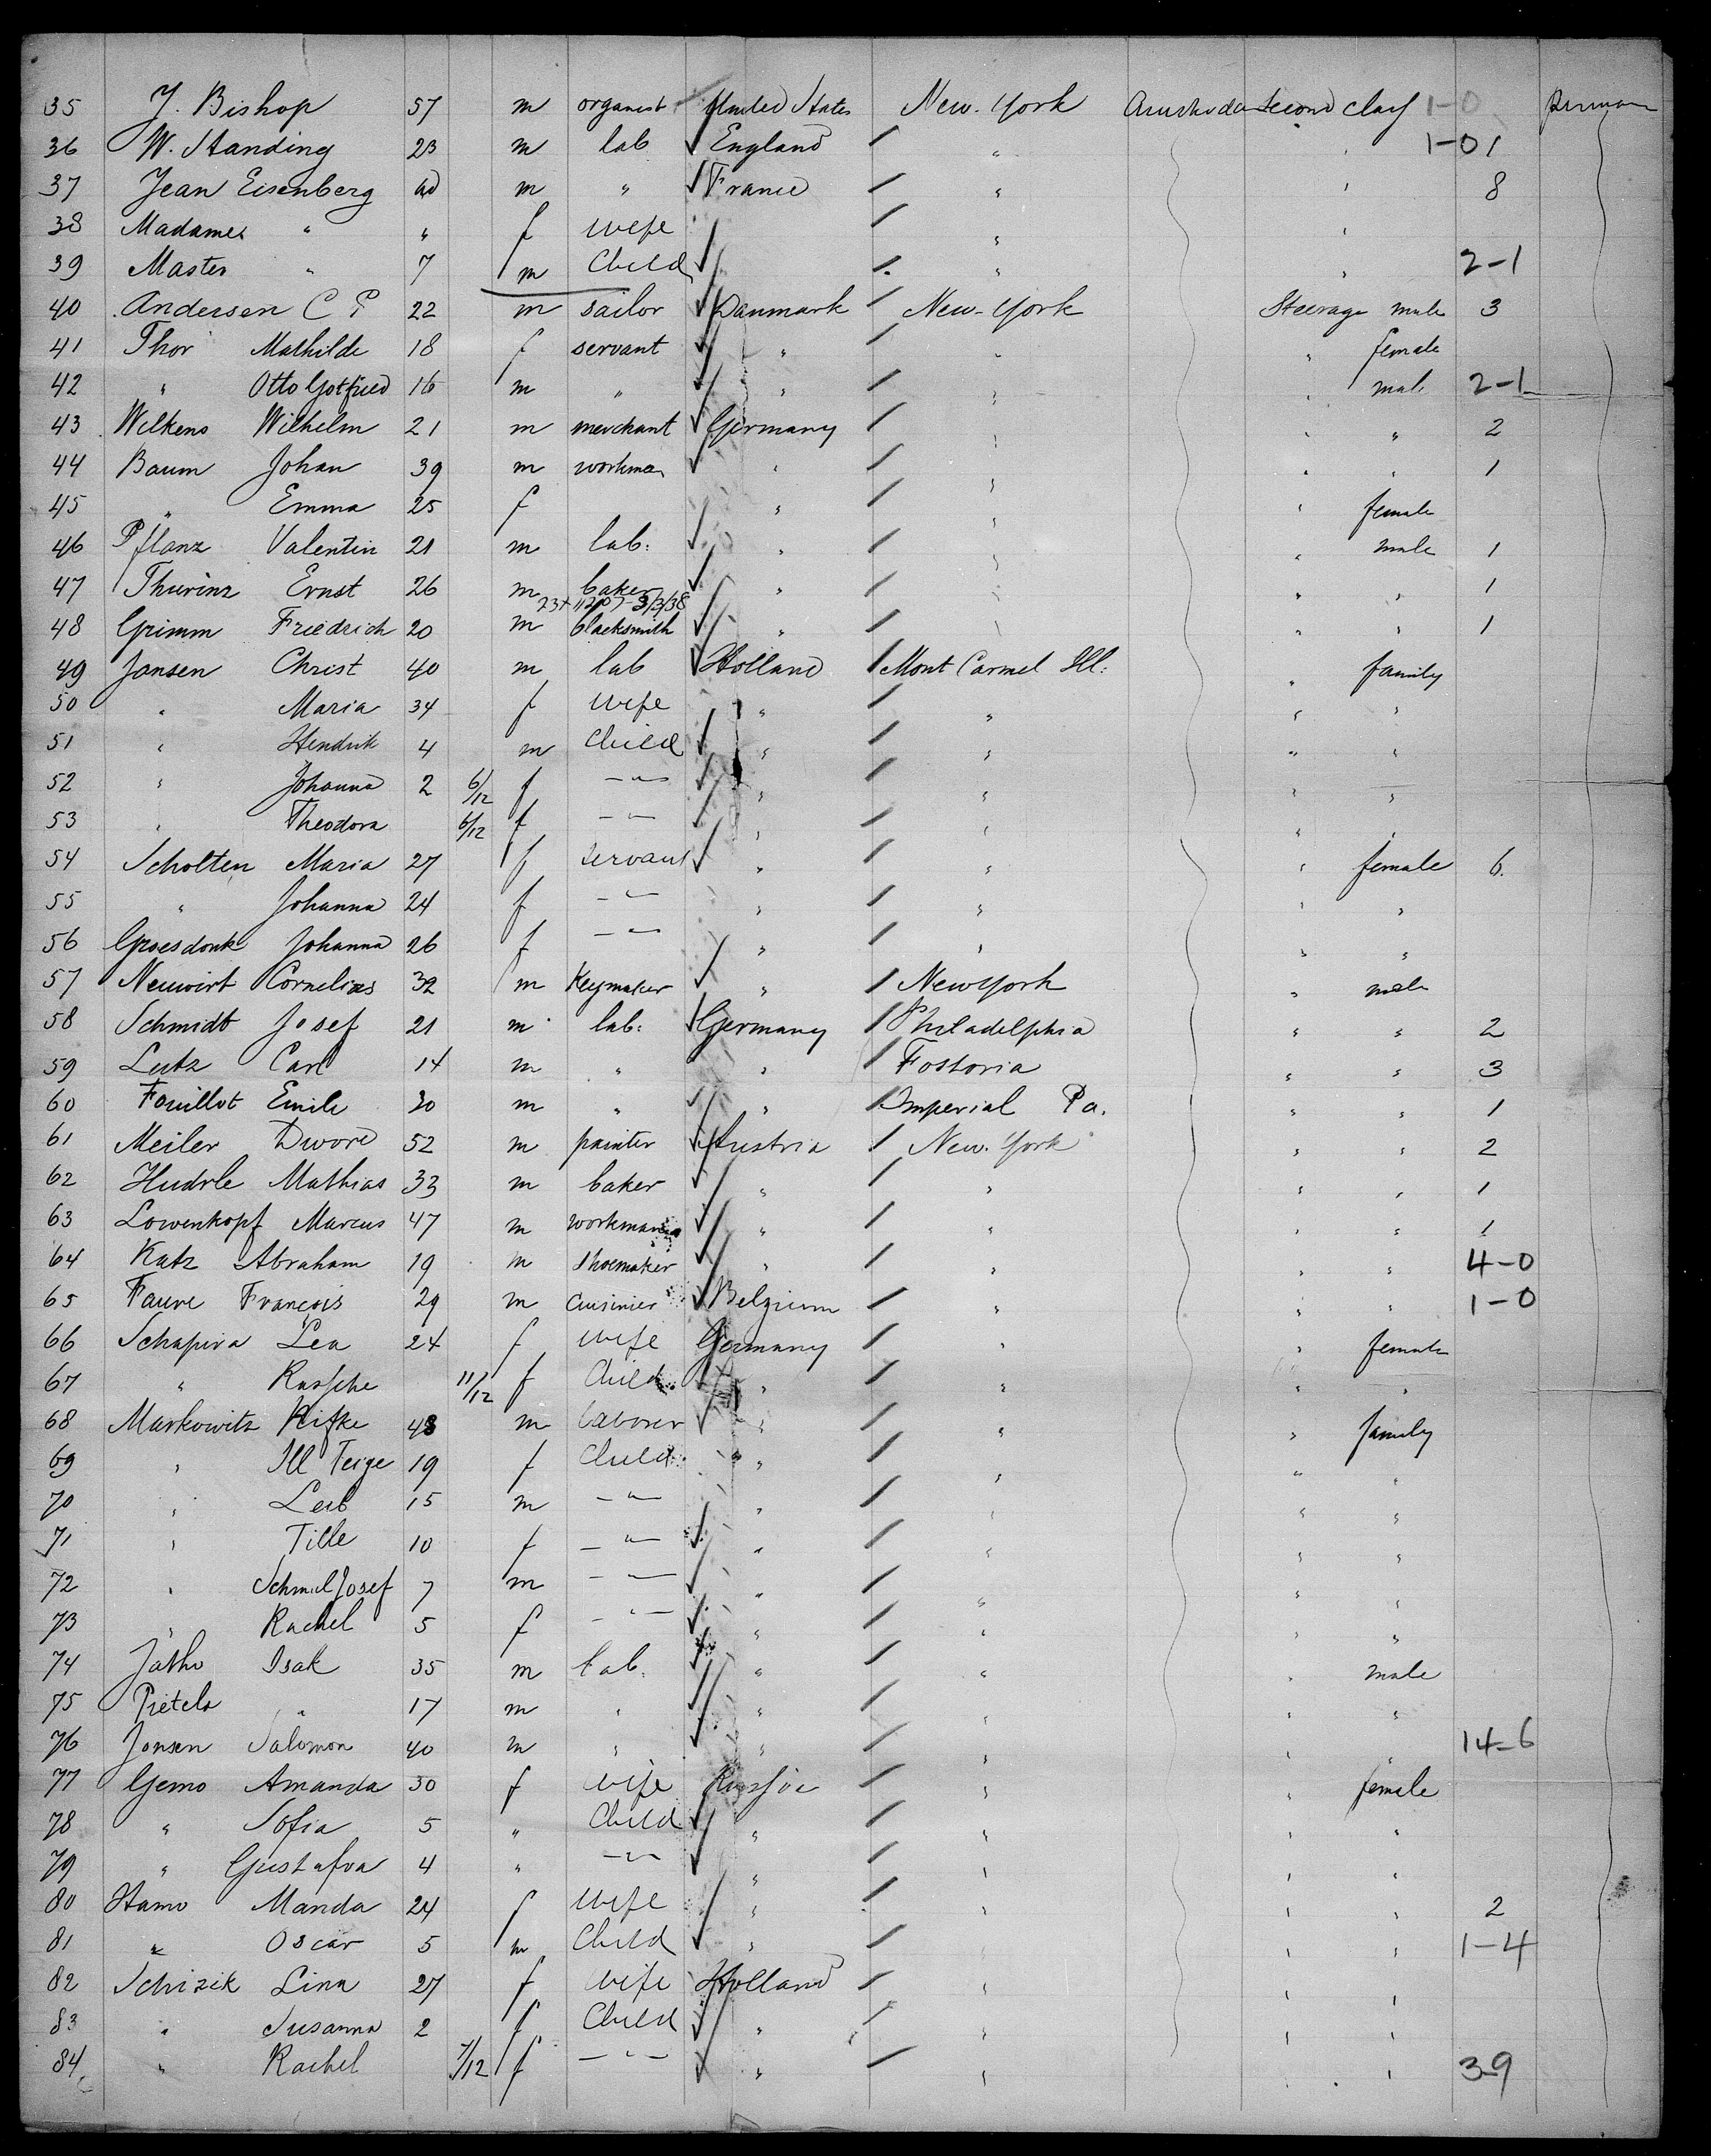 35 J. Bishop 57 m organist United States New-York Second class 1-0
36 W. Standing 23 m lab England " " 1-01
37 Jean Eisenberg ad m " France " " 8
38 Madame " " f wife " "
39 Master " 7 m Child " " " 2-1
40 Andersen C P 22 m sailor Danmark New-York Steerage male 3
41 Thor Mathilde 18 f servant " " " female
42 " Otto Gotfried 16 m " " " " male 2-1
43 Wilkens Wilhelm 21 m merchant Germany " " " 2
44 Baum Johan 39 m workman " " " " 1
45 " Emma 25 f " " " female
46 Pflanz Valentin 21 m lab: " " " male 1
47 Thurinz Ernst 26 m baker " " " " 1
48 Grimm Friedrich 20 m blacksmith " " " " 1
49 Jansen Christ 40 m lab Holland Mont Carmel Ill: " family
50 " Maria 34 f wife " " " "
51 " Hendrik 4 m Child " " " "
52 " Johanna 2 6/12 f -"- " " " "
53 " Theodora 6/12 f -"- " " " "
54 Scholten Maria 27 f servant " " " female 6.
55 " Johanna 24 f -"- " " " "
56 Groesdonk Johanna 26 f -"- " " " "
57 Neuwirt Cornelius 32 m Keymaker " New York " male
58 Schmidt Josef 21 m lab: Germany Philadelphia " " 2
59 Lutz Carl 14 m " " Fostoria " " 3
60 Fouillot Emile 30 m " " Imperial Pa. " " 1
61 Meiler Dword 52 m painter Austria New-York " " 2
62 Hudrle Mathias 33 m baker " " " " 1
63 Lowenkopf Marcus 47 m workman " " " " 1
64 Katz Abraham 19 m shoemaker " " " " 4-0
65 Faure François 29 m cuisinier Belgium " " " 1-0
66 Schapira Lea 24 f wife Germany " " female
67 " Rasche 11/12 f Child " " " "
68 Markowitz Rifke 48 m laborer " " " family
69 " Ill Feige 19 f Child " " " "
70 " Leib 15 m -"- " " " "
71 " Tille 10 f -"- " " " "
72 " Schmul Josef 7 m -"- " " " "
73 " Rachel 5 f -"- " " " "
74 Jatho Isak 35 m lab. " " " male
75 Pietela " 17 m " " " " "
76 Jonsen Salomon 40 m " " " " " 14-6
77 Gemo Amanda 30 f wife " " female
78 " Sofia 5 " Child " " " "
79 " Gustafva 4 " -"- " " " "
80 Hamo Manda 24 f wife " " " " 2
81 " Oscar 5 m Child " " " " 1-4
82 Schizik Lina 27 f wife Holland " " "
83 " Susanna 2 f Child " " " "
84 " Rachel 7/12 f -"- " " " " 39